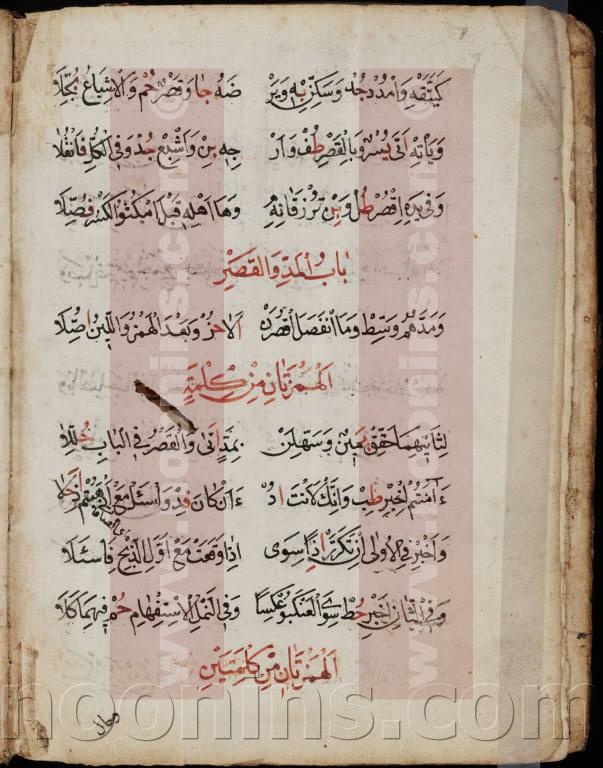 كيتقه وامدد جد وسكن به ويرضه جا وقصر حم والاشباع بجلا
وياته اتى يسر وبالقصر طف وارجه بن واشبع جد وفي الكل فانقلا
وفي يده اقصر طل وبن ترزقانه وها اهله قبل امكثوا الكسر فصلا
باب المد والقصر
ومدهم وسط وما انفصل اقصرن الا حز وبعد الهمز واللين اصلا
الهمزتان من كلمة
لثانيهما حقق يمين وسهلن بمد اتى والقصر في الباب حللا
ءامنتم اخبر طب وانك لانت اد ءان كان فد واسئل مع اذهبتم اذ حلا
واخبر في الاولى ان تكرر اذا سوى اذا وقعت مع اول الذبح فاسئلا
وفي الثان اخبر حط سوى العنكبو عكسا وفي النمل الاستفهام حم فيهما كلا
الهمزتان من كلمتين
www.noonins.com
www.noonins.com
noonins.com